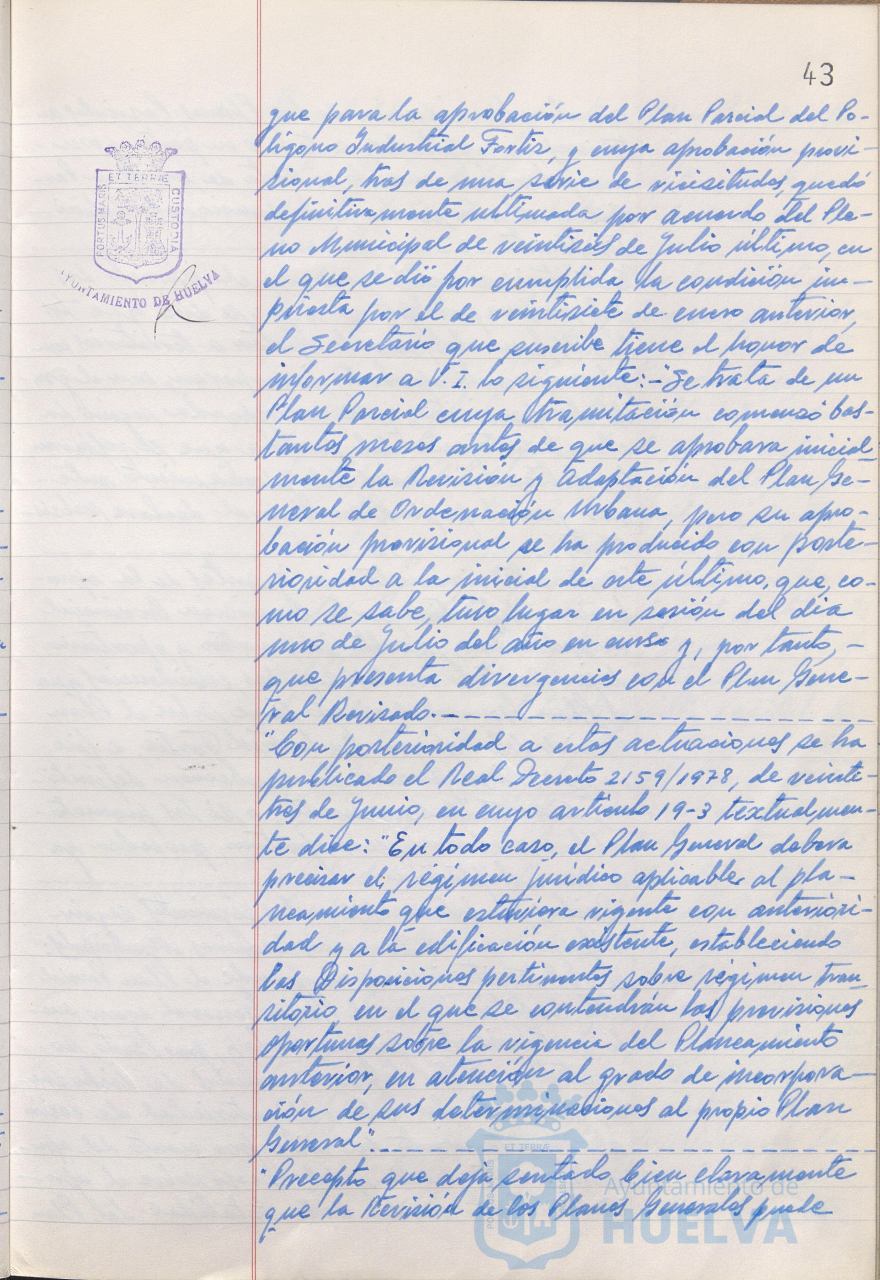 43
que para la aprobación del Plan Parcial del Po-
lígono Industrial Fertiz, y cuya aprobación provi-
sional, tras de una serie de vicisitudes, quedó
definitivamente ultimada por acuerdo del Ple-
no Municipal de veintiseis de Julio último, en
el que se dió por cumplida la condición im-
puesta por el de veintisiete de enero anterior,
el Secretario que suscribe tiene el honor de
informar a V. I. lo siguiente:- "Se trata de un
Plan Parcial cuya tramitación comenzó bas-
tantes meses antes de que se aprobara inicial-
mente la Revisión y Adaptación del Plan Ge-
neral de Ordenación Urbana, pero su apro-
bación provisional se ha producido con poste-
rioridad a la inicial de este último, que, co-
mo se sabe, tuvo lugar en sesión del dia
uno de Julio del año en curso y, por tanto, -
que presenta divergencias con el Plan Gene-
ral Revisado.-----------------
"Con posterioridad a estas actuaciones se ha
publicado el Real Decreto 2159/1978, de veinti-
tres de Junio, en cuyo articulo 19-3 textualmen-
te dice: "En todo caso, el Plan General debera
precisar el régimen jurídico aplicable al pla-
neamiento que estuviera vigente con anteriori-
dad y a la edificación existente, estableciendo
las Disposiciones pertinentes sobre régimen tran-
sitorio, en el que se contendrán las provisiones
oportunas sobre la vigencia del Planeamiento
anterior, en atención al grado de incorpora-
ción de sus determinaciones al propio Plan
General".--------------------
"Precepto que deja sentado bien claramente
que la Revisión de los Planes Generales puede
PORTUS MARIS ET TERRÆ CUSTODIA
AYUNTAMIENTO DE HUELVA
ET TERRÆ
Ayuntamiento de
HUELVA